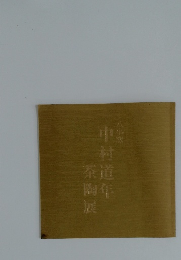 中村道年
茶陶展